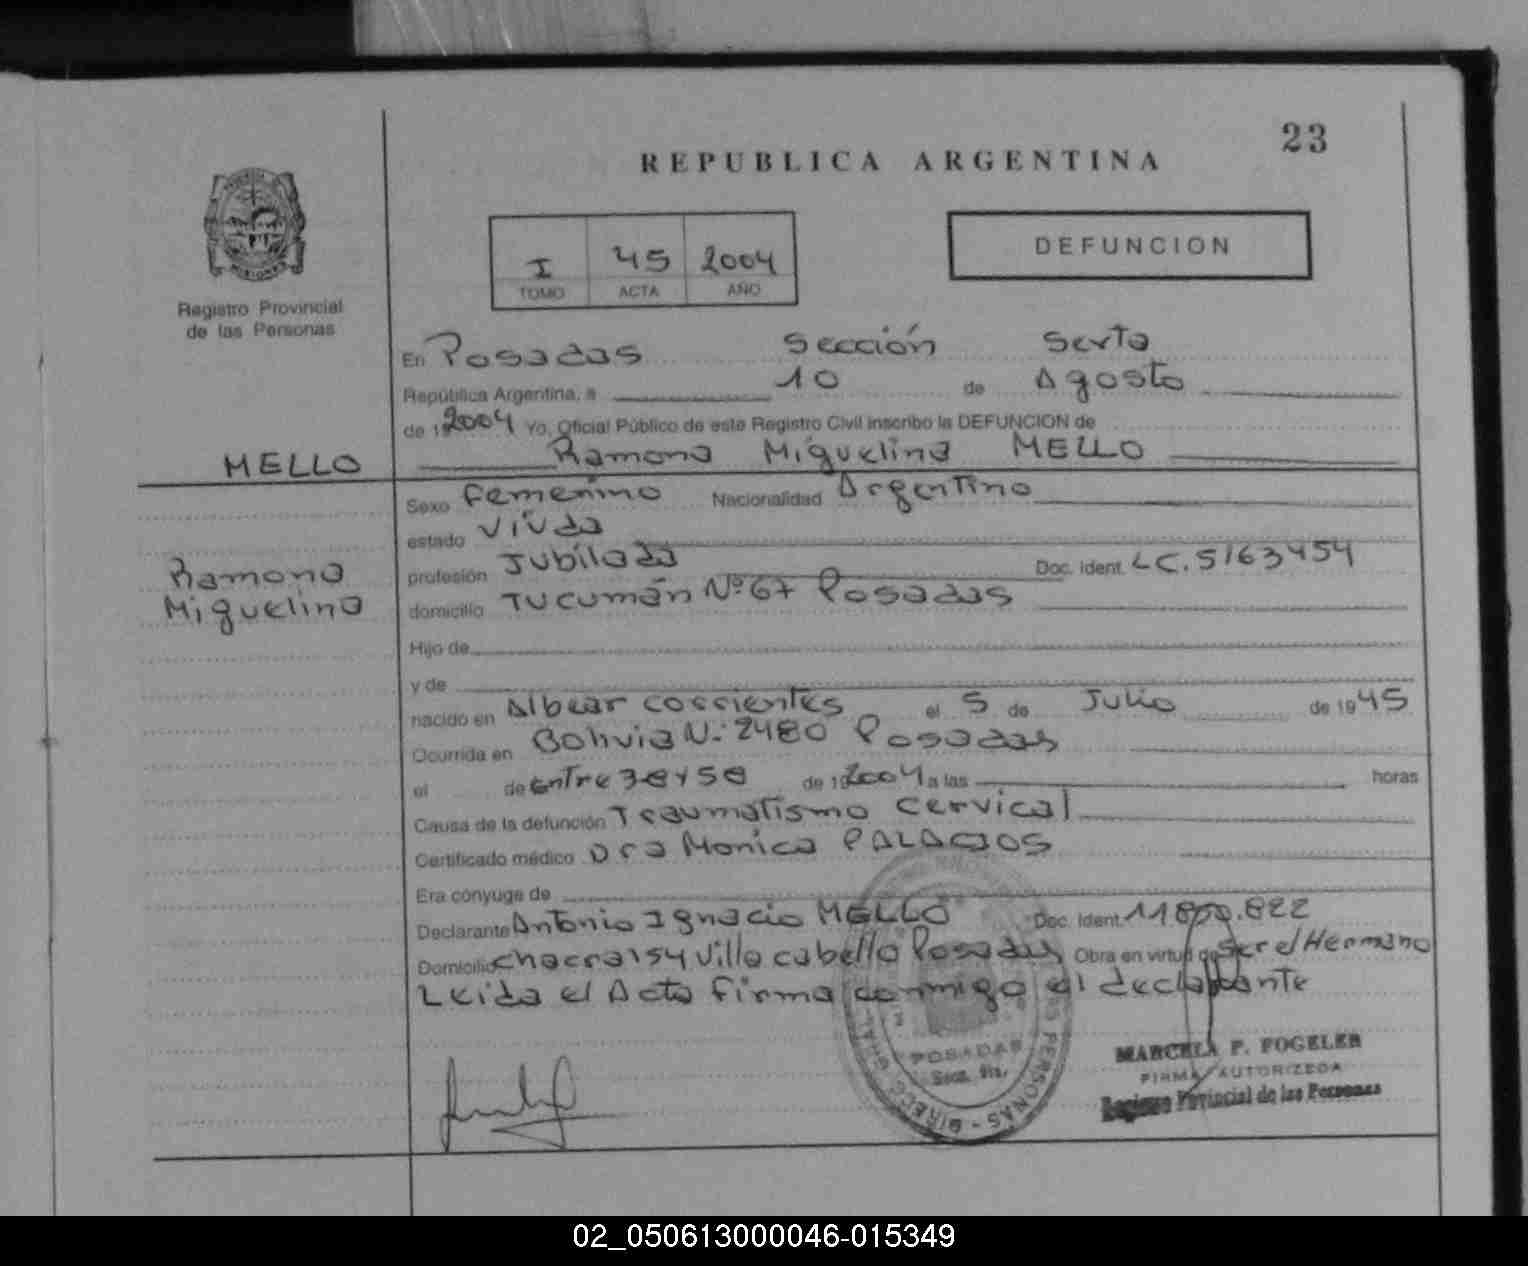 23
REPUBLICA ARGENTINA
I 45 2004
TOMO ACTA AÑO
DEFUNCION
Registro Provincial
de las Personas
En Posadas Sección Sexta
República Argentina, a 10 de Agosto
de 19 2004 Yo, Oficial Público de este Registro Civil inscribo la DEFUNCION de
MELLO
Ramona Miguelina MELLO
Sexo Femenino Nacionalidad Argentina
estado Viuda
Ramona
Miguelina
profesión Jubilada Doc. Ident. LC. 5163454
domicilio Tucumán Nº 67 Posadas
Hijo de
y de
nacido en Albear Corrientes el 5 de Julio de 1945
Ocurrida en Bolivia N: 2480 Posadas
el de entre de 19 2004 a las horas
Causa de la defunción Traumatismo cervical
Certificado médico Dra Monica PALACIOS
Era cónyuge de
Declarante Antonio Ignacio MELLO Doc. Ident.
Domicilio chacra 154 Villa cabello Posadas Obra en virtud de Ser el Hermano
Leida el Acta firma conmigo el declarante
POSADAS
Secc. 6ta.
MARCELA F. FOGELER
FIRMA AUTORIZADA
Registro Provincial de las Personas
02_050613000046-015349